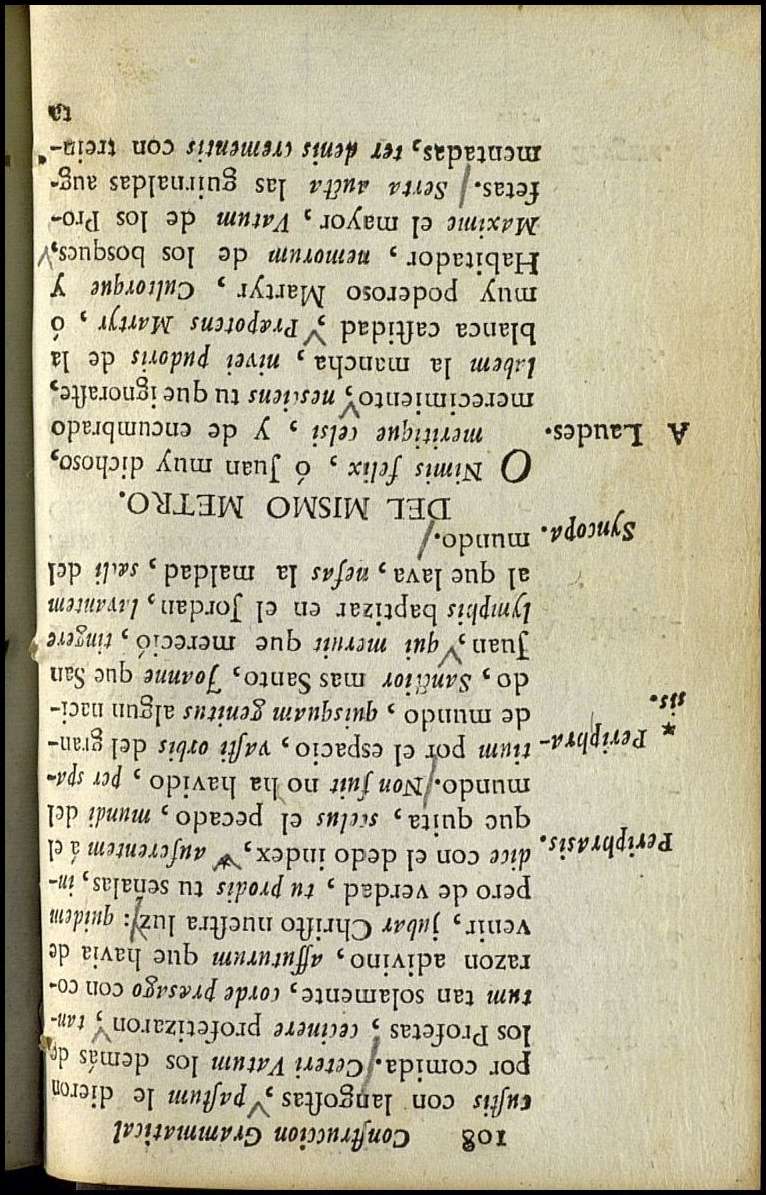 108 Construccion Grammatical
custis con langostas, pastum le dieron
por comida. Ceteri Vatum los demás de
los Profetas, cecinere profetizaron, tan-
tum tan solamente, corde præsago con co-
razon adivino, affuturum que havia de
venir, jubar Christo nuestra luz: quidem
pero de verdad, tu prodis tu señalas, in-
dice con el dedo index, * auferentem á el
Periphrasis.
que quita, scelus el pecado, mundi del
mundo. Non fuit no ha havido, per spa-
tium por el espacio, vasti orbis del gran-
* Periphra-
sis.
de mundo, quisquam genitus algun naci-
do, Sanctior mas Santo, Joanne que San
Juan, qui meruit que mereció, tingere
lymphis baptizar en el Jordan, lavantem
al que lava, nefas la maldad, sæcli del
mundo.
Syncopa.
DEL MISMO METRO.
O Nimis felix, ó Juan muy dichoso,
meritique celsi, y de encumbrado
A Laudes.
merecimiento, nesciens tu que ignoraste,
labem la mancha, nivei pudoris de la
blanca castidad, Præpotens Martyr, ó
muy poderoso Martyr, Cultorque y
Habitador, nemorum de los bosques,
Maxime el mayor, Vatum de los Pro-
fetas. Serta aucta las guirnaldas aug-
mentadas, ter denis crementis con trein-
ta